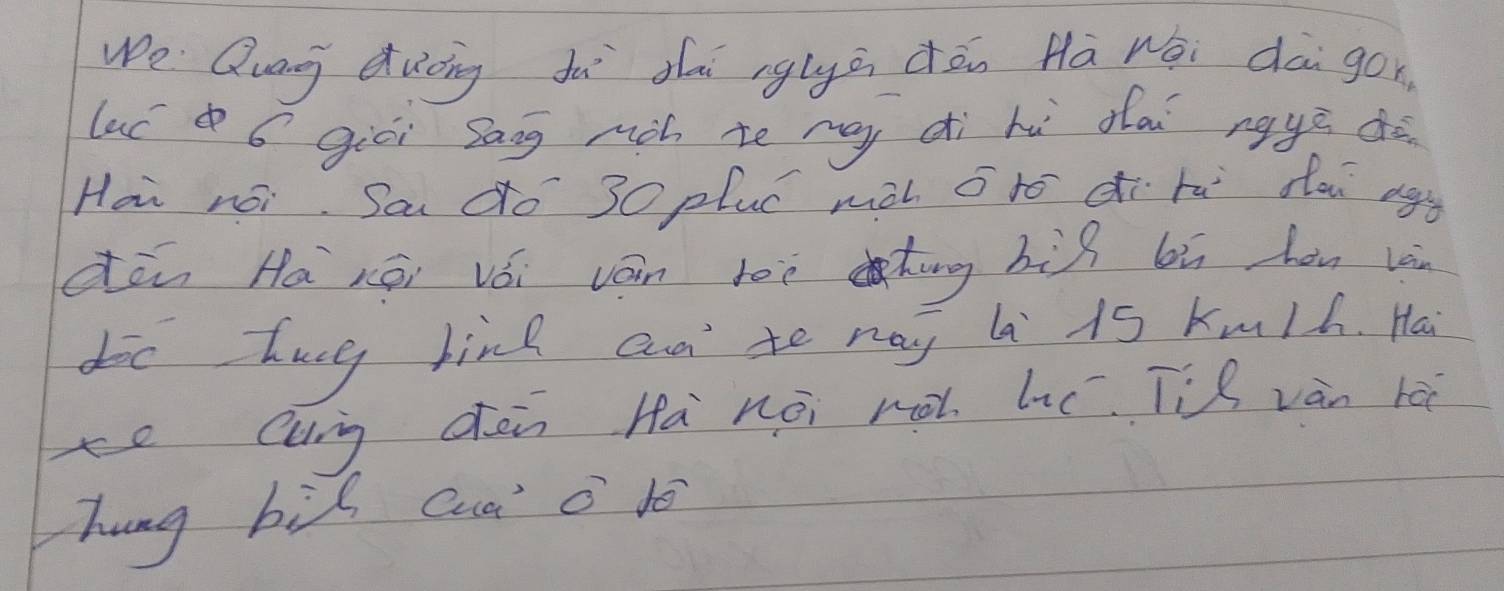 Quang đường từ thái nguyên đến Hà Nội dài 90k
lúc 6 giời sang một xe may đi từ thái nguyê đến
Hài nội. Sau đó 30 phuc một ô tô đi từ thai nguy
đến Hà nội với vân tốc trung bih lớn hơn vân
tốc trung bình của xe may là 15 Km/h. Hai
xe cung đến Hà nội một luc. Tih vàn tốc
trung bih của ô tô